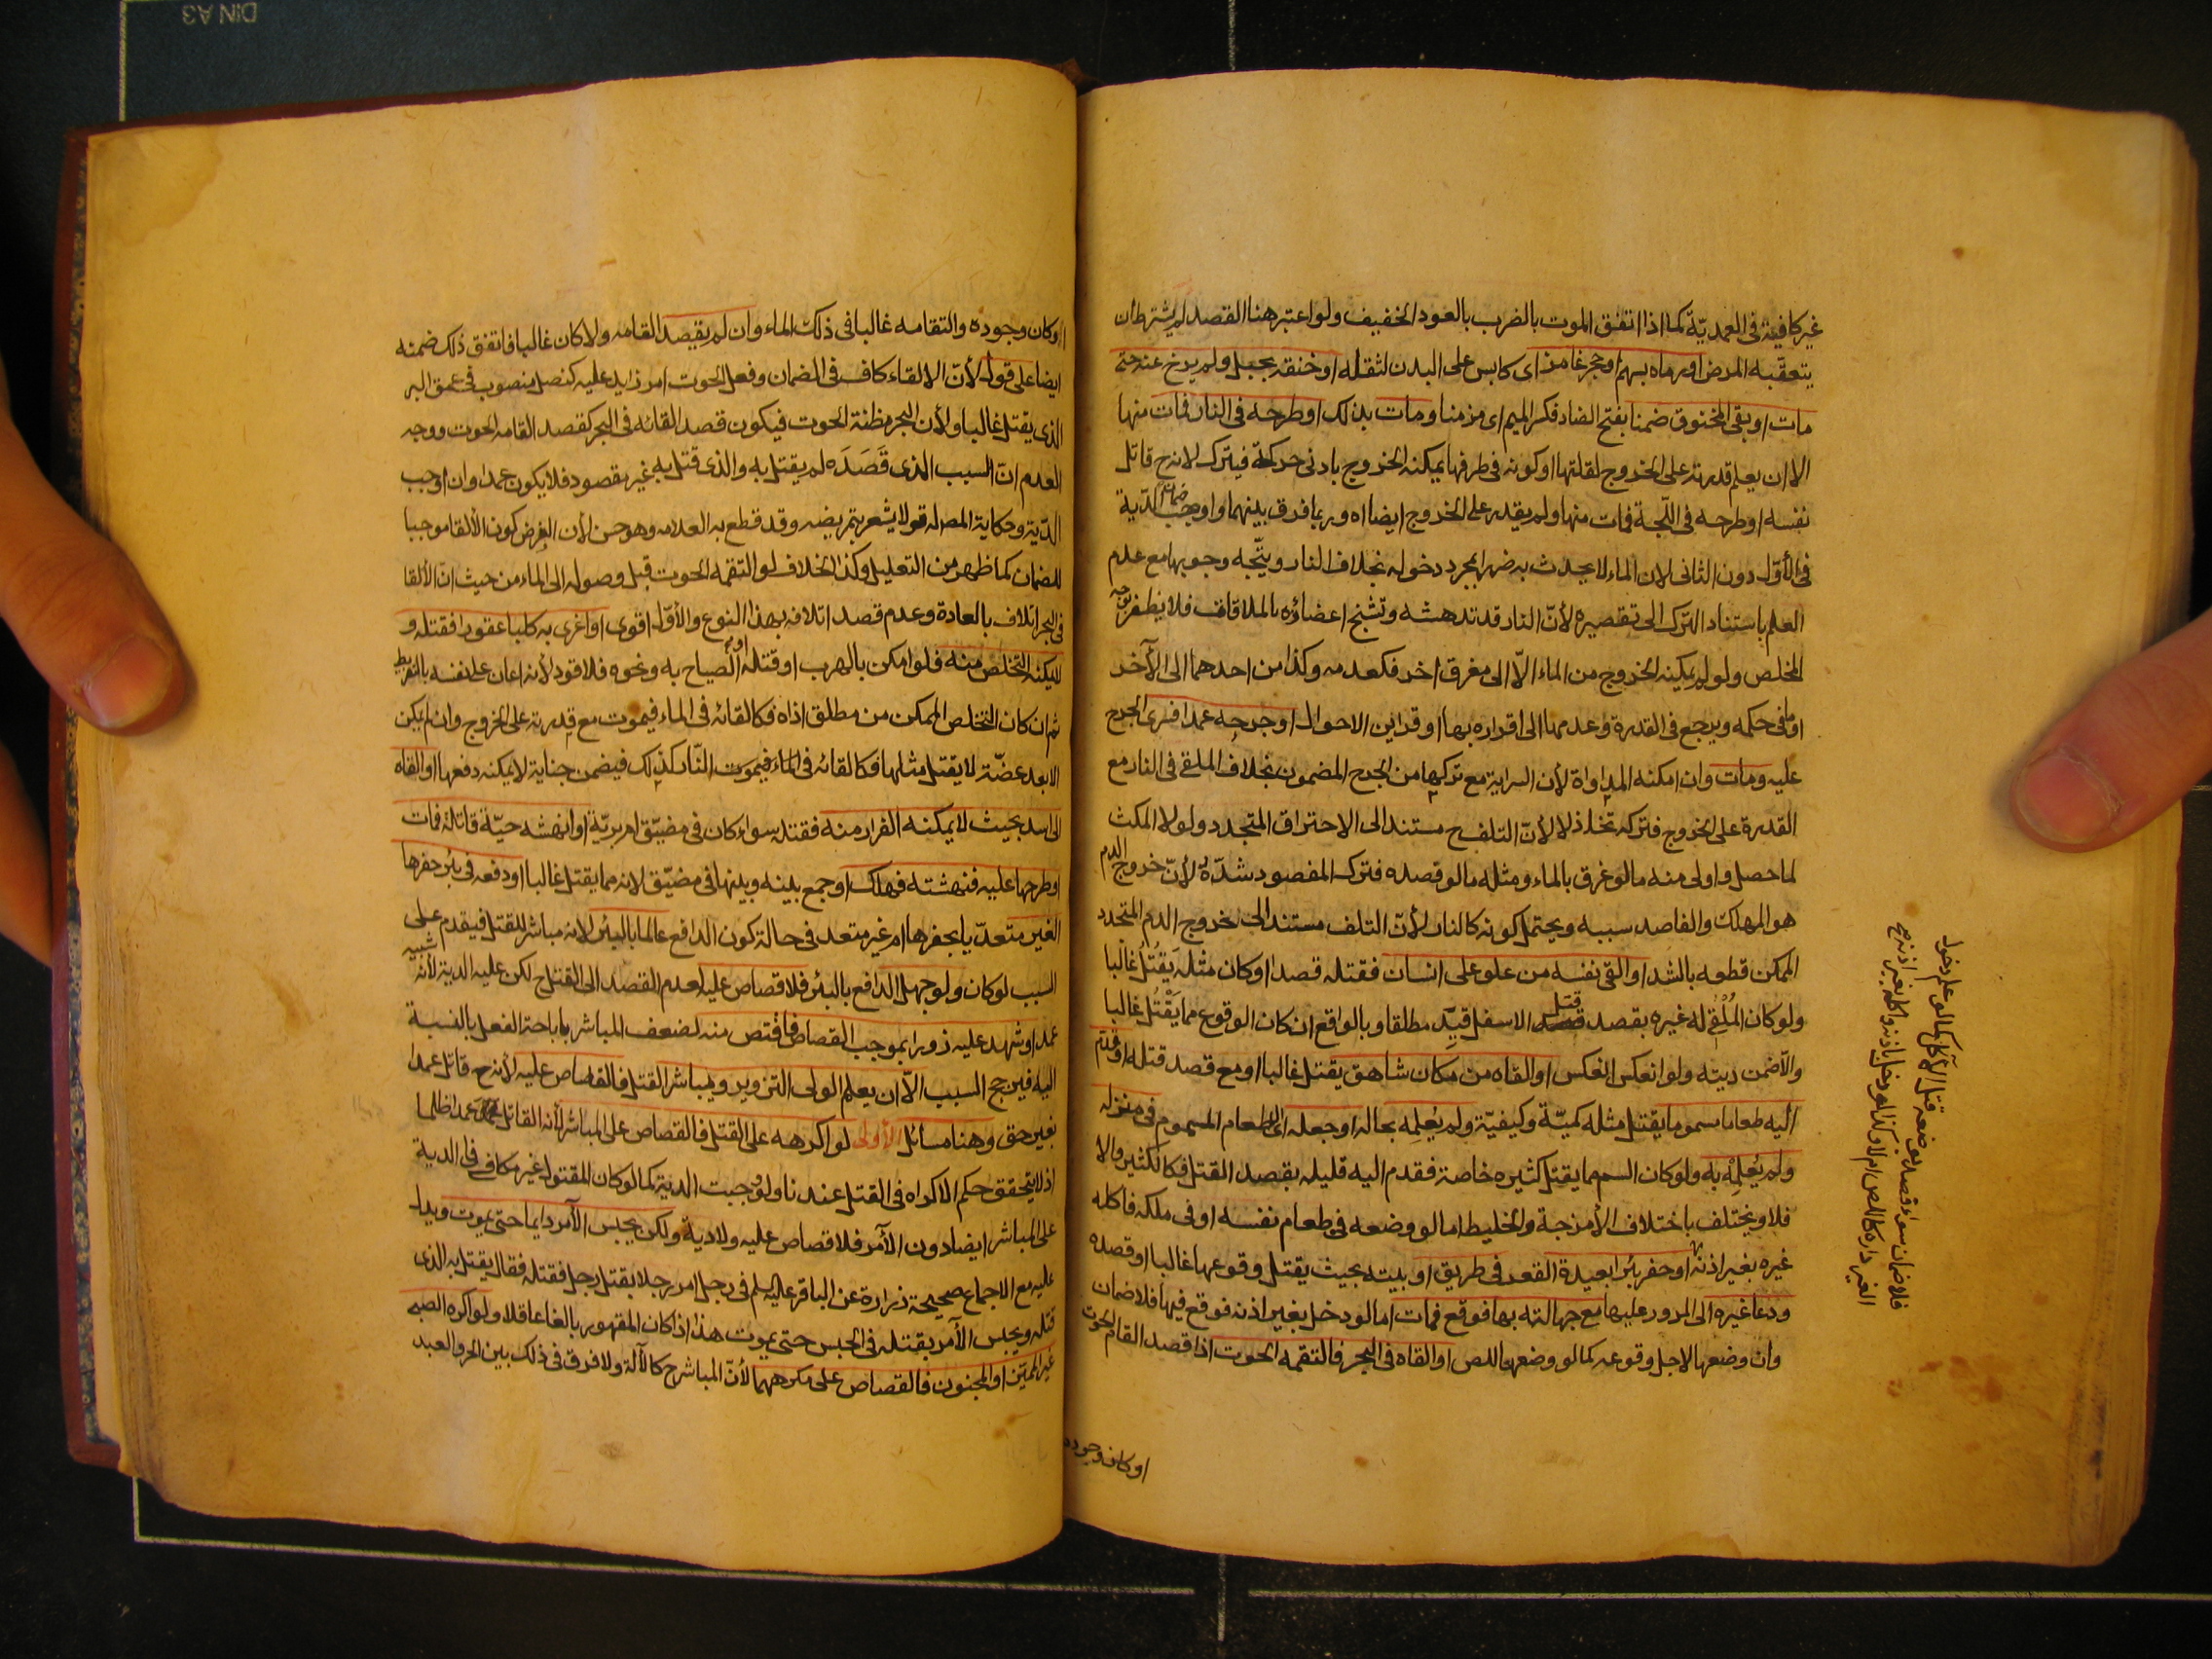 غير كافية في العمدية كما اذا اتفق الموت بالضرب بالعود الخفيف ولو اعتبر هنا القصد لم يشترط ان
يتعقبه المرض او رماه بسهم او حجر غامز اى كابس على البدن لثقله او خنقه بحبل ولم يرخ عنه حتى
مات او بقى المخنوق ضمنا بفتح الضاد فكسر الميم اى مزمنا ومات بذلك او طرحه في النار فمات منها
الا ان يعلم قدرته على الخروج لقلتها او كونه في طرفها يمكنه الخروج بادنى حركة فيترك لانه ح قاتل
نفسه او طرحه في اللجة فمات منها ولم يقدر على الخروج ايضا اه وربما فرق بينهما واوجب ضمان الدية
في الأول دون الثاني لان الماء لا يحدث به ضررا بمجرد دخوله بخلاف النار ويتجه وجوبها مع عدم
العلم باستناد الترك الى تقصيره لأن النار قد تدهشه وتشنج اعضاؤه بالملاقاة فلا يظفر بوجه
المخلص ولو لم يمكنه الخروج من الماء الّا الى مغرق اخر فكعدمه وكذا من احدهما الى الآخر
او ما في حكمه ويرجع في القدرة وعدمها الى اقراره بها او قراين الاحوال او جرحه عمدا فسرى الجرح
عليه ومات وان امكنه المداواة لأن السراية مع تركها من الجرح المضمون بخلاف الملقى في النار مع
القدرة على الخروج فتركه تخاذلا لأنّ التلف ح مستند الى الاحتراق المتجدد ولولا المكث
لما حصل واولى منه ما لو غرق بالماء ومثله ما لو قصده فترك المفصود شدّه لأنّ خروج الدم
هو المهلك والفاصد سببه ويحتمل كونه كالنار لأنّ التلف مستند الى خروج الدم المتجدد
الممكن قطعه بالشد او القى نفسه من علو على انسان فقتله قصدا او كان مثله يَقتُل غالبا
ولو كان المُلْقِى له غيره بقصد قتل الاسفل قيد به مطلقا وبالواقع ان كان الوقوع مما يَقْتُل غالبا
والّا ضمن ديته ولو انعكس انعكس او القاه من مكان شاهق يقتل غالبا او مع قصد قتله او قدّم
اليه طعاما مسموما يقتل مثله كميّة وكيفيّة ولم يُعلِمه بحاله او جعله اى الطعام المسموم في منزله
ولم يُعلِمْه به ولو كان السم مما يقتل كثيره خاصة فقدم اليه قليله بقصد القتل فكالكثير والا
فلا ويختلف باختلاف الأمزجة والخليط اما لو وضعه في طعام نفسه او في ملكه فاكله
غيره بغير اذنه او حفر بئرا بعيدة القعر في طريق او بيته بحيث يقتل وقوعها غالبا او قصده
ودعا غيره الى المرور عليها مع جهالته بها فوقع فمات اما لو دخل بغير اذنه فوقع فيها فلا ضمان
وان وضعها لاجل وقوعه كما لو وضعها للص او القاه في البحر فالتقمه الحوت اذا قصد القام الحوت
او كان وجوده
فلا ضمان سواء قصد بوضعه قتل الآكل كما لو علم دخول
الغير داره كاللص ام لا وكذا لو دخل باذنه واكله بغير اذنه ح
او كان وجوده والتقامه غالبا في ذلك الماء وان لم يقصد القامه ولا كان غالبا فاتفق ذلك ضمنه
ايضا على قول لأنّ الالقاء كاف في الضمان وفعل الحوت امر زايد عليه كنصل منصوب في عمق البر
الذى يقتل غالبا ولأن البحر مظنة الحوت فيكون قصد القائه في البحر كقصد القامه الحوت ووجه
العدم انّ السبب الذى قَصَدَه لم يقتل به والذى قتل به غير مقصود فلا يكون عمدا وان اوجب
الدّية وحكاية المصـ له قولا يشعر بتمريضه وقد قطع به العلامه وهو حسن لأن الغرض كون الالقا موجبا
للضمان كما ظهر من التعليل وكذا الخلاف لو التقمه الحوت قبل وصوله الى الماء من حيث انّ الالقا
في البحر اتلاف بالعادة وعدم قصد اتلافه بهذا النوع والأوّل اقوى او اغرى به كلبا عقورا فقتله و
لا يمكنه التخلص منه فلو امكن بالهرب او قتله او الصياح به ونحوه فلا قود لأنه اعان على نفسه بالتفريط
ثم ان كان التخلص الممكن من مطلق اذاه فكالقائه في الماء فيموت مع قدرته على الخروج وان لم يكن
الا بعد عضّة لا يقتل مثلها فكالقائه في الماء فيموت النّار كذلك فيضمن جناية لا يمكنه دفعها او القاه
الى اسد بحيث لا يمكنه الفرار منه فقتله سواء كان في مضيّق ام بريّة او انهشه حيّة قاتلة فمات
او طرحها عليه فنهشته فهلك او جمع بينه وبينها في مضيّق لانه مما يقتل غالبا او دفعه في بئر حفرها
الغير متعدّيا بحفرها ام غير متعد في حالة كون الدافع عالما بالبئر لانه مباشر للقتل فيقدم على
السبب لو كان ولو جهل الدافع بالبئر فلا قصاص عليه لعدم القصد الى القتل ح لكن عليه الدية لأنه شبيه
عمد او شهد عليه زورا بموجب القصاص فاقتص منه لضعف المباشر باباحة الفعل بالنسبة
اليه فيرجح السبب الّا ان يعلم الولى التزوير ويباشر القتل فالقصاص عليه لأنه ح قاتل عمدا
بغير حق وهنا مسائل الأولى لو اكرهه على القتل فالقصاص على المباشر لأنه القاتل عمدا ظلما
اذ لا يتحقق حكم الاكراه في القتل عندنا ولو وجبت الدية كما لو كان المقتول غير مكافئ فالدية
على المباشر ايضا دون الآمر فلا قصاص عليه ولا دية ولكن يحبس الآمر دايما حتى يموت ويدل
عليه مع الاجماع صحيحة زرارة عن الباقر عليه السلم في رجل امر رجلا بقتل رجل فقتله فقال يقتل به الذى
قتله ويحبس الآمر بقتله في الحبس حتى يموت هذا اذا كان المقهور بالغا عاقلا ولو اكره الصبي
غير المميّز او المجنون فالقصاص على مكرههما لأنّ المباشر ح كالآلة ولا فرق في ذلك بين الحر والعبد